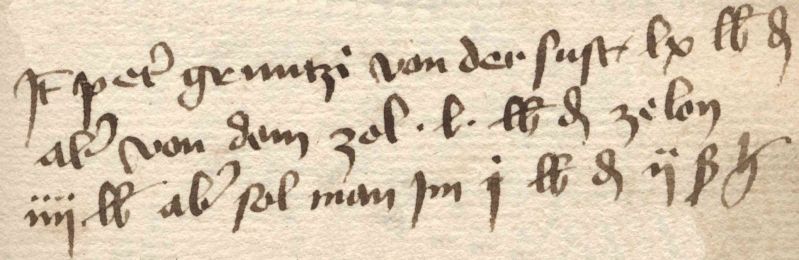 Jt pet' gruntzi von der sust lx lb d
ab' von dem zol · l · lb d ze lon
iiij lb ab' sol man jm j lb d ij ß h